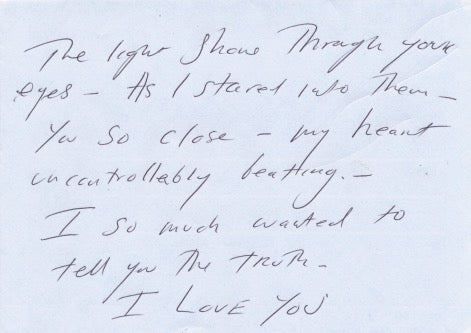 The light shone Through your
eyes - As I stared into Them -
You so close - my heart
uncontrollably beatting. -
I so much wanted to
tell you The truth -
I LOVE YOU